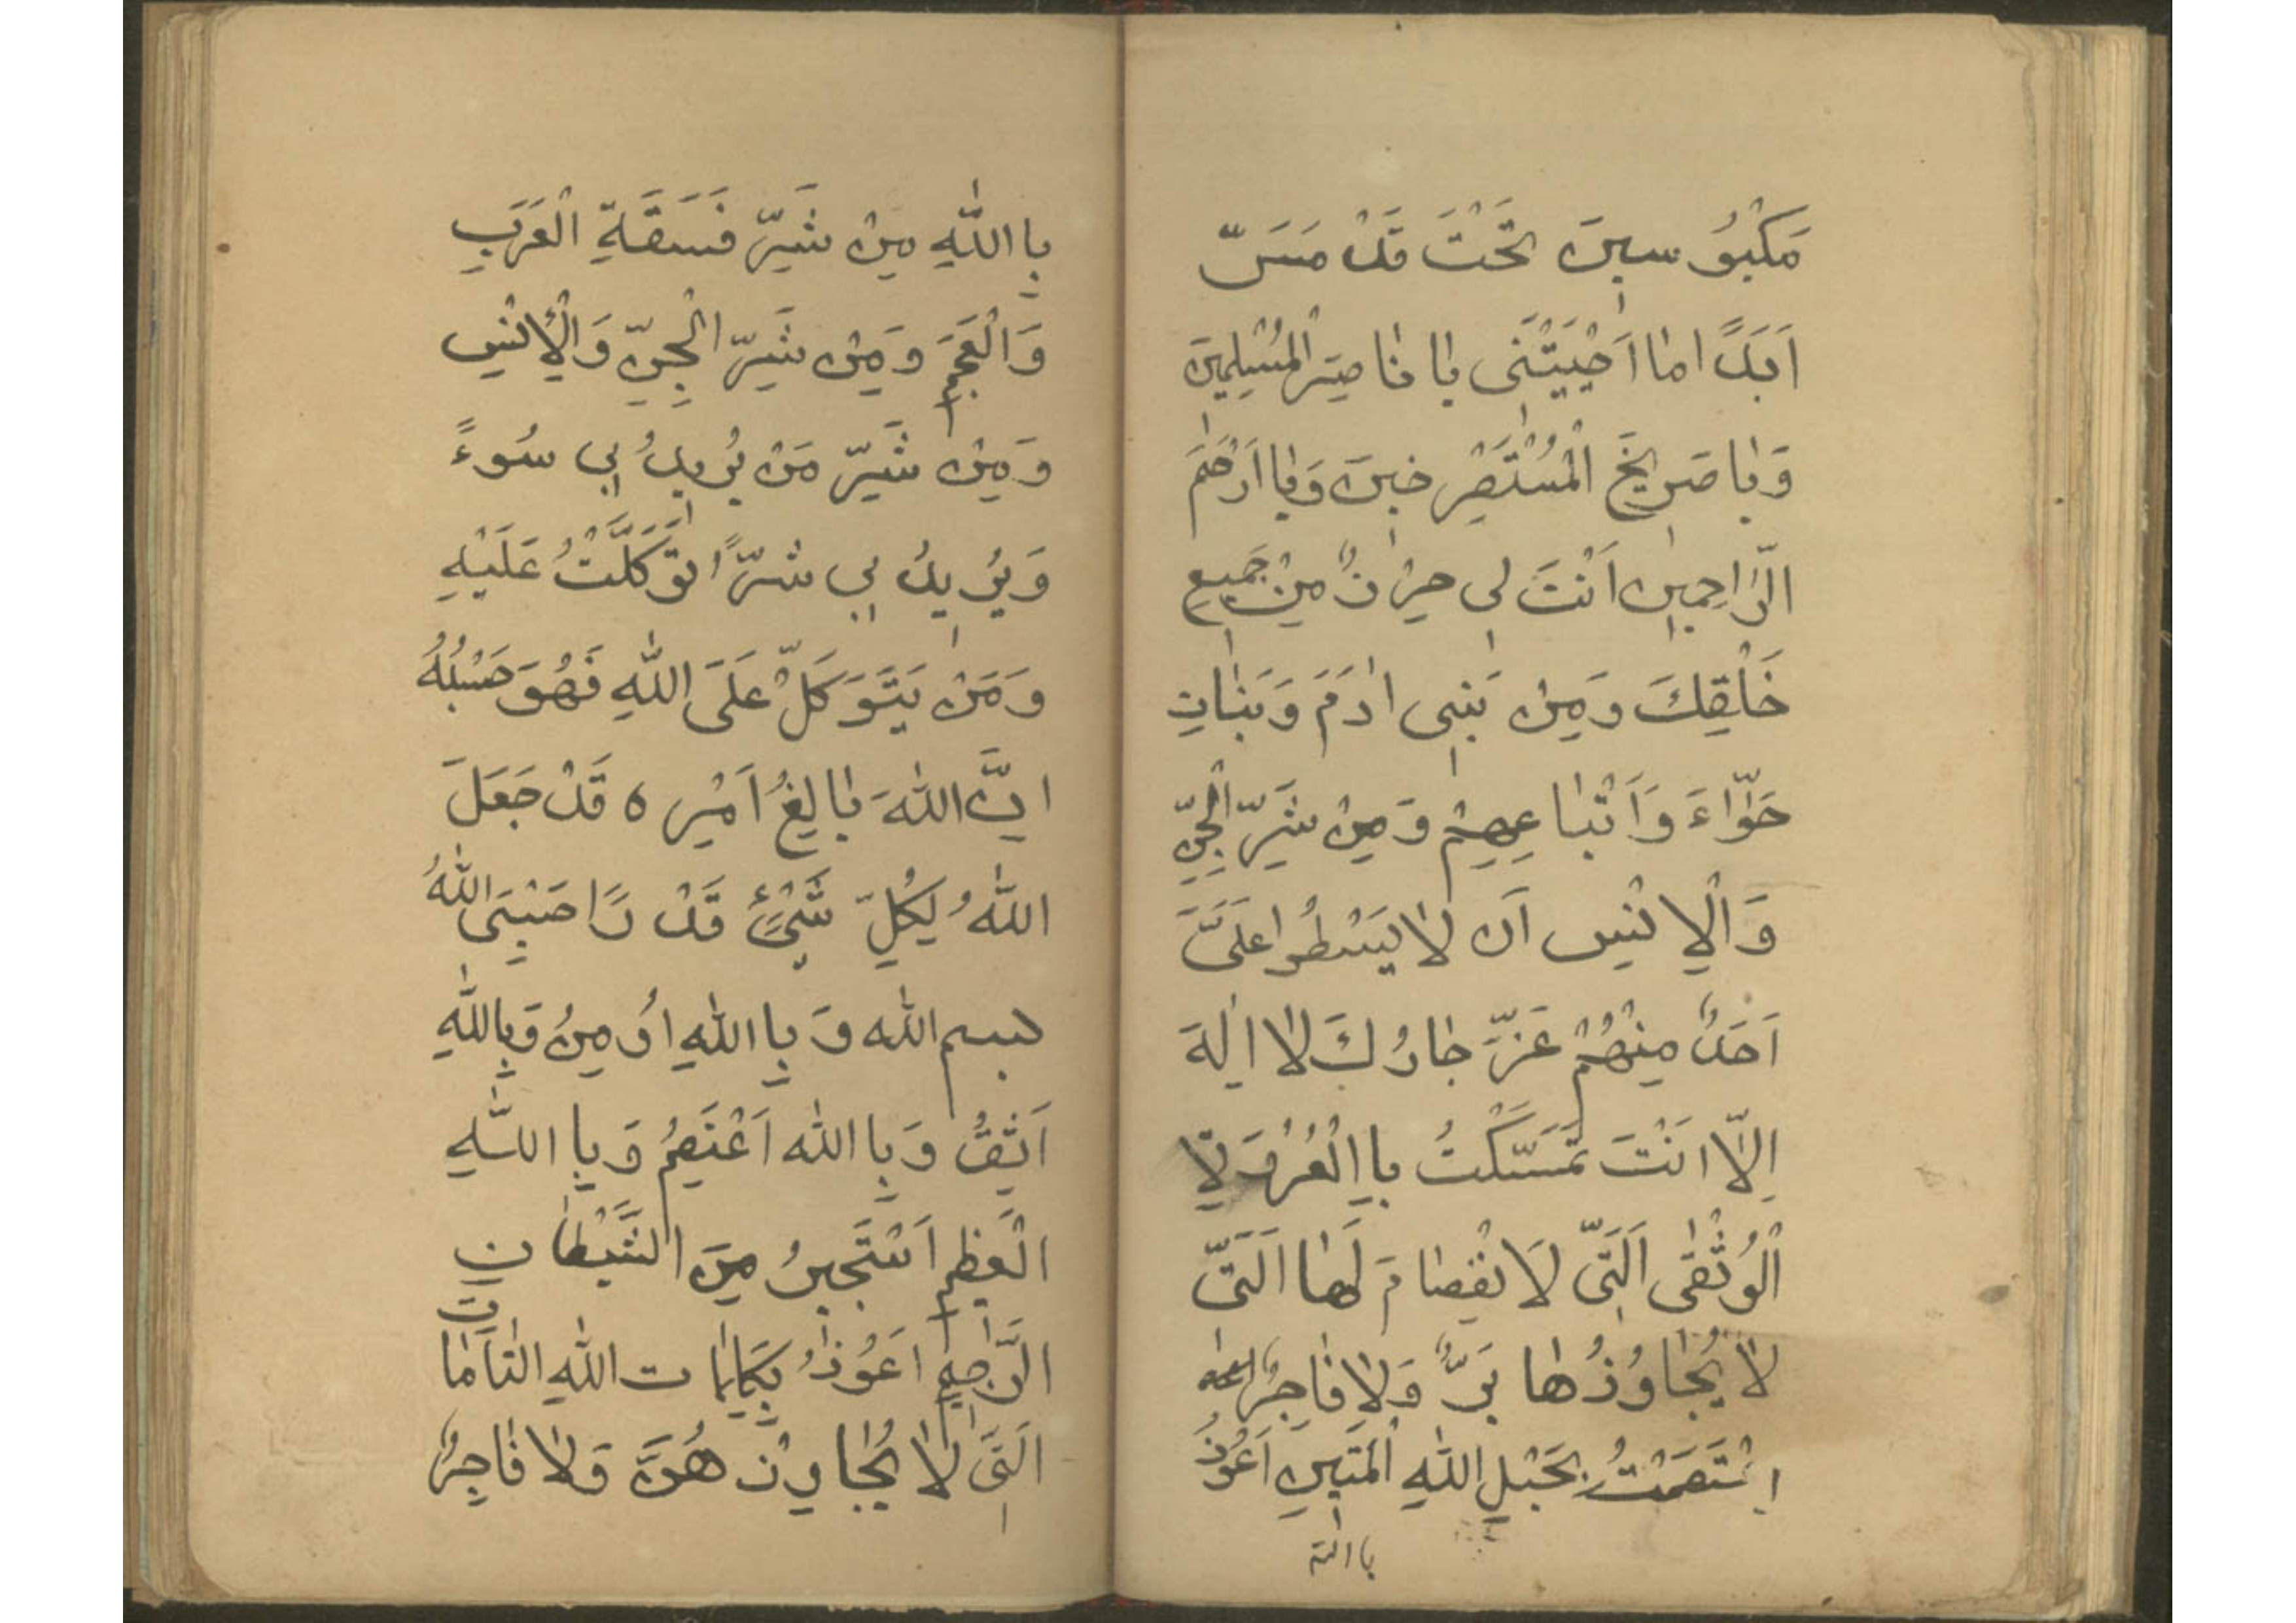 مَكْبُو سِينَ تَحْتَ قَدْ مَسَّ
اَبَدًا اِمَا اَجَبْتَنَى يَا نَاصِرَ الْمُسْلِمِينَ
وَيَا صَرِيخَ الْمُسْتَصْرِخِينَ وَيَا اَرْحَمَ
الرَّاحِمِينِ اَنْتَ لِى حِرْزٌ مِنْ جَمِيعِ
خَلْقِكَ وَمِنْ بَنِى ادَمَ وَبَنَاتِ
حَوَّاءَ وَاَتْبَاعِهِمْ وَمِنْ شَرِّ الْجِنِّ
وَالْاِنْسِ اَن لَا يَسْطُوا عَلَىَّ
اَحَدٌ مِنْهُمْ عَزَّ جَارُكَ لَا اِلٰهَ
اِلَّا اَنْتَ تَمَسَّكْتُ بِاالْعُرْوَةِ
الْوُثْقٰى اَلَتِّى لَا نْفِصَامَ لَهَا اَلَتِّى
لَا يُجَاوُزُهَا بَرٌّ وَلَا فَاجِرٌ
اِعْتَصَمْتُ بِحَبْلِ اللّٰهِ الْمَتِينِ اَعُوذُ
بااللّٰه
بِااللّٰهِ مِنْ شَرِّ فَسَقَةِ الْعَرَبِ
وَالْعَجَمِ وَمِنْ شَرِّ الْجِنِّ وَالْاِنْسِ
وَمِنْ شَرِّ مَنْ يُرِيدُ بِى سُوءً
وَيُرِيدُ بِى شَرًّا تَوَكَّلْتُ عَلَيْهِ
وَمَنْ يَتَوَكَّلْ عَلَى اللّٰهِ فَهُوَ حَسْبُهُ
اِنَّ اللّٰهَ بَالِغُ اَمْرِه قَدْ جَعَلَ
اللّٰهُ لِكُلِّ شَىْءٍ قَدْرًا حَسْبِىَ اللّٰهُ
بسم اللّٰه وَبِااللّٰهِ اُومِنُ وَبِاللّٰهِ
اَثِقُ وَبِااللّٰه اَعْتَصِمُ وَبِااللّٰهِ
الْعَظِيمِ اَسْتَجِيرُ مِنَ الشَّيْطَانِ
الرَّجِيمِ اَعُوذُ بِكَلِمَات اللّٰهِ التَّامَاتِ
اَلَتِى لَا يُجَاوِزهُنَّ وَلَا فَاجِرٌ